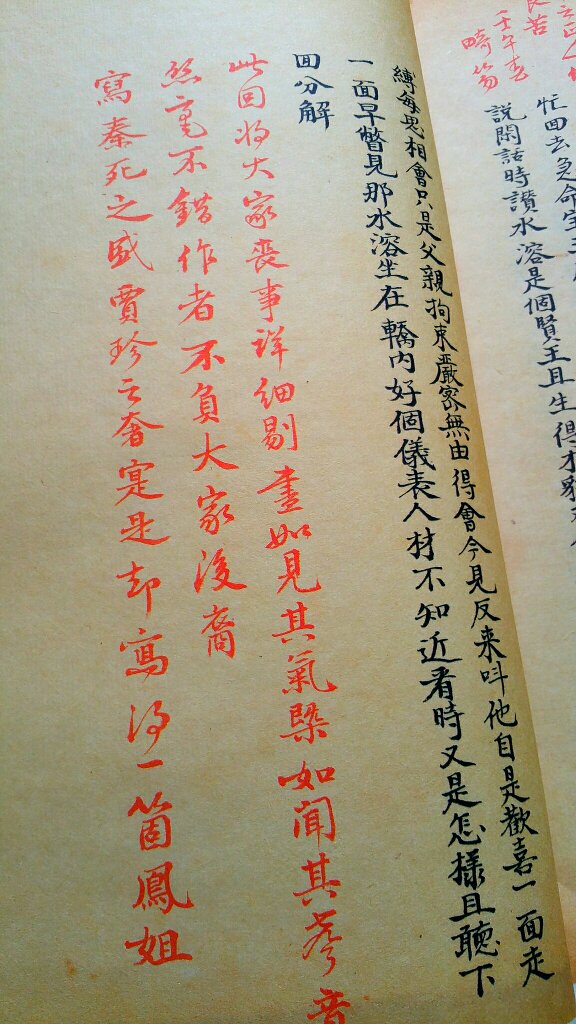 壬午春
畸笏
忙回去急命宝玉
説閑話時讚水溶是個賢王且生得才貌
縛每思相會只是父親拘束嚴密無由得會今見反来呌他自是歡喜一面走
一面早瞥見那水溶坐在轎内好個儀表人材不知近看時又是怎樣且聽下
回分解
此回将大家喪事詳細剔盡如見其氣槩如聞其声音
丝毫不錯作者不負大家後裔
寫秦死之盛賈珍之奢寔是却寫得一箇鳳姐